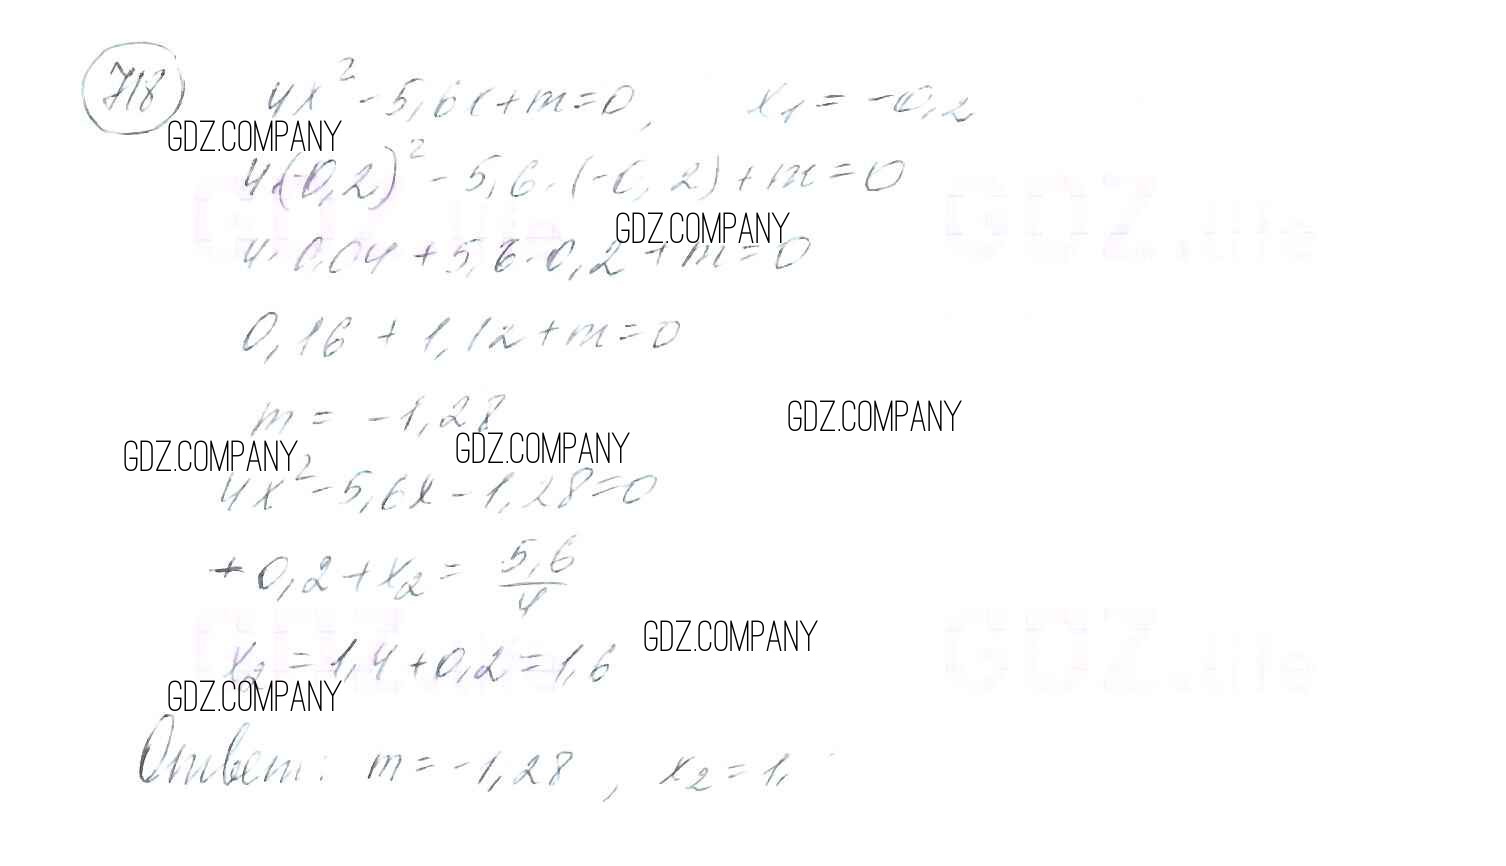 718 4x² - 5,6x + m = 0, x₁ = -0,2
GDZ.COMPANY
4·(-0,2)² - 5,6·(-0,2) + m = 0
GDZ.COMPANY
4·0,04 + 5,6·0,2 + m = 0
GDZ.life GDZ.life
0,16 + 1,12 + m = 0
m = -1,28
GDZ.COMPANY
GDZ.COMPANY GDZ.COMPANY
4x² - 5,6x - 1,28 = 0
+ 0,2 + x₂ = 5,6/4
GDZ.COMPANY
x₂ = 1,4 + 0,2 = 1,6
GDZ.life GDZ.life
GDZ.COMPANY
Ответ: m = -1,28, x₂ = 1,